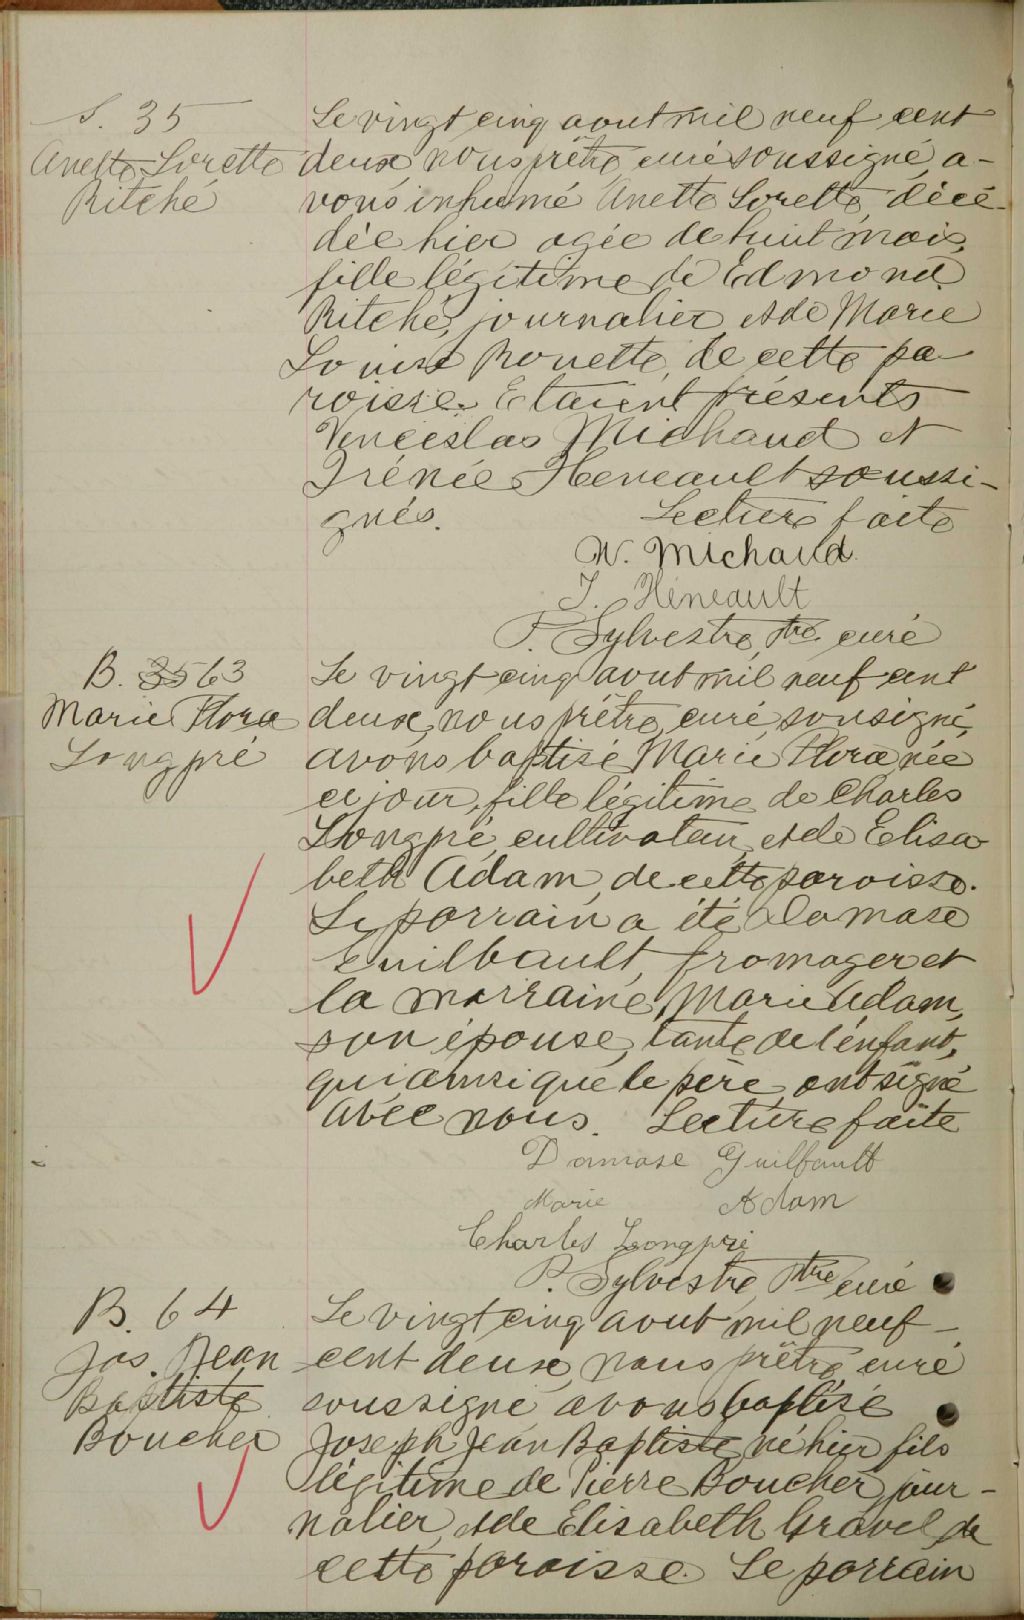 S. 35
Anette Lorette
Ritché
Le vingt cinq aout mil neuf cent
deux, nous prêtre, curé soussigné, a-
vons inhumé Anette Lorette, décé-
dée hier agée de huit mois,
fille légitime de Edmond
Ritché, journalier et de Marie
Louise Rouette, de cette pa-
roisse. Etaient présents
Venceslas Michaud et
Irénée Heneault soussi-
gnés. Lecture faite
W. Michaud.
I. Héneault
P. Sylvestre, Ptre. curé
B. 35 63
Marie Flora
Longpré
Le vingt cinq aout mil neuf cent
deux, nous prêtre, curé, sousigné,
avons baptisé Marie Flora, née
ce jour, fille légitime de Charles
Longpré, cultivateur, et de Elisa-
beth Adam, de cette paroisse.
Le parrain a été Damase
Guilbault, fromager et
la marraine, Marie Adam,
son épouse, tante de l'enfant,
qui ainsi que le père, ont signé
avec nous. Lecture faite
Damase Guilbault
Marie Adam
Charles Longpré
P. Sylvestre, Ptre curé
B. 64
Jos. Jean
Baptiste
Boucher
Le vingt cinq aout mil neuf-
cent deux, nous prêtre, curé
soussigné, avons baptisé
Joseph Jean Baptiste, né hier fils
légitime de Pierre Boucher, jour-
nalier, et de Elisabeth Gravel de
cette paroisse. Le parrain